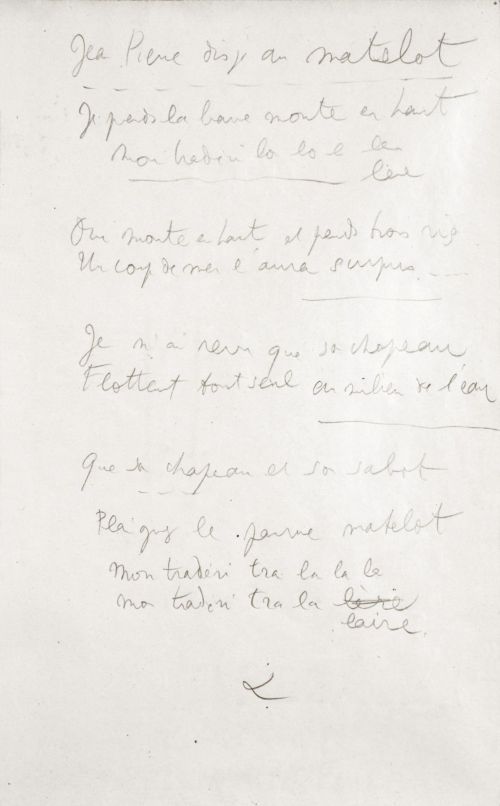 Jean Pierre dis je au matelot
Je prends la barre monte en haut
Mon traderi la la
lère
Oui monte en haut et prends trois ris
Un coup de mer l'aura surpris
Je n'ai revu que son chapeau
Flottant tout seul au milieu de l'eau
Que son chapeau et son sabot
Plaignez le pauvre matelot
Mon tradéri tra la la la
mon tradéri tra la lèrie
laire.